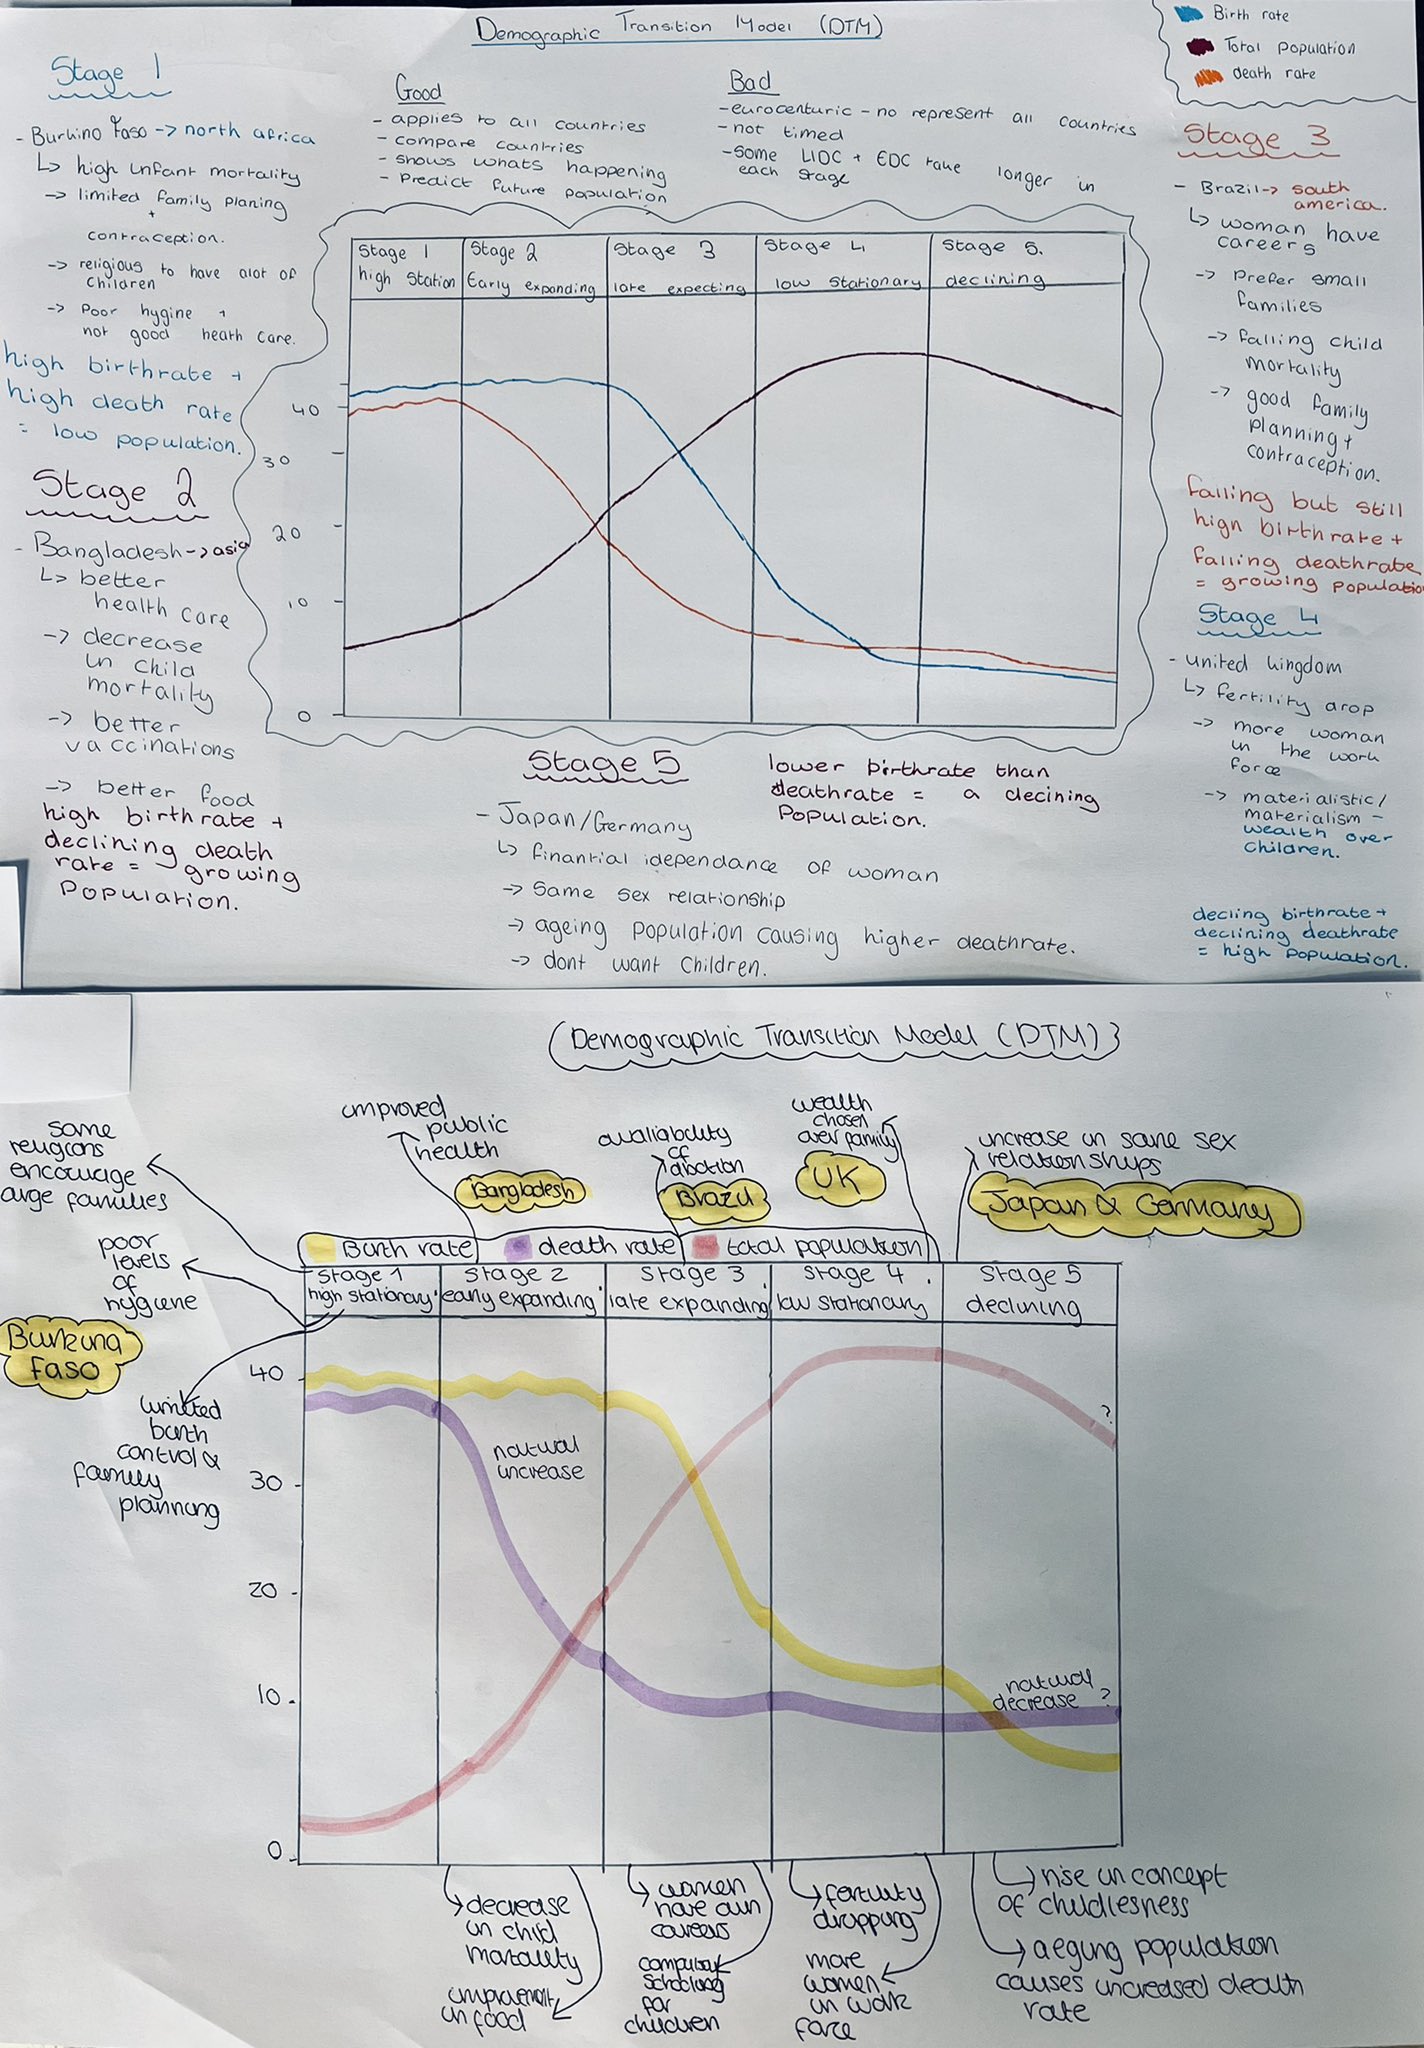 Demographic Transition Model (DTM)
Birth rate
Total population
death rate
Stage 1
- Burkino Faso -> north africa
↳ high infant mortality
-> limited family planing
+
contraception.
-> religious to have alot of
children
-> Poor hygine +
not good heath care.
high birthrate +
high death rate
= low population.
Good
- applies to all countries
- compare countries
- shows whats happening
- Predict future population
Bad
- eurocenturic - no represent all countries
- not timed
- Some LIDC + EDC take longer in
each stage
Stage 2
- Bangladesh -> asia
↳ better
health care
-> decrease
in child
mortality
-> better
vaccinations
-> better food
high birthrate +
declining death
rate = growing
Population.
Stage 1
high Station
Stage 2
Early expanding
Stage 3
late expecting
Stage 4
low stationary
Stage 5.
declining
40
30
20
10
0
Stage 3
- Brazil -> south
america.
↳ woman have
careers
-> Prefer small
families
-> falling child
mortality
-> good family
planning +
contraception.
falling but still
high birthrate +
falling deathrate
= growing population
Stage 4
- united kingdom
↳ fertility drop
-> more woman
in the work
force
-> materialistic/
materialism -
wealth over
children.
decling birthrate +
declining deathrate
= high population.
Stage 5
- Japan/Germany
↳ finantial idependance of woman
-> Same sex relationship
-> ageing population causing higher deathrate.
-> dont want children.
lower birthrate than
deathrate = a declining
Population.
(Demographic Transition Model (DTM)}
some
religions
encourage
large families
poor
levels
of
hygiene
Burkina
Faso
limited
birth
control &
family
planning
improved
public
health
Bangladesh
availiability
of
abortion
Brazil
wealth
chosen
over family
UK
increase in same sex
relationships
Japan & Germany
Birth rate
death rate
total population
Stage 1
high stationary
Stage 2
early expanding
Stage 3
late expanding
Stage 4
low stationary
Stage 5
declining
40
30
20
10
0
natural
increase
?
natural
decrease ?
decrease
in child
mortality
improvement
in food
women
have own
careers
compulsory
schooling
for
children
fertility
dropping
more
women
in work
force
rise in concept
of childlesness
ageing population
causes increased death
rate